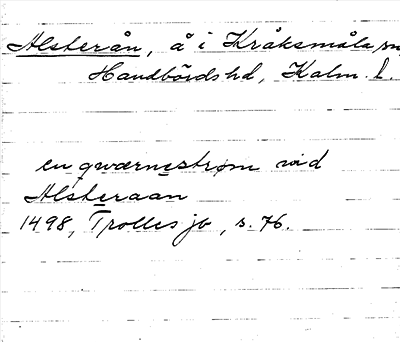 Alsterån, å i Kråksmåla sn,
Handbörds hd, Kalm. l.
en qwærnestrøm wid
Alsteraan
1498, Trolles jb, s. 76.